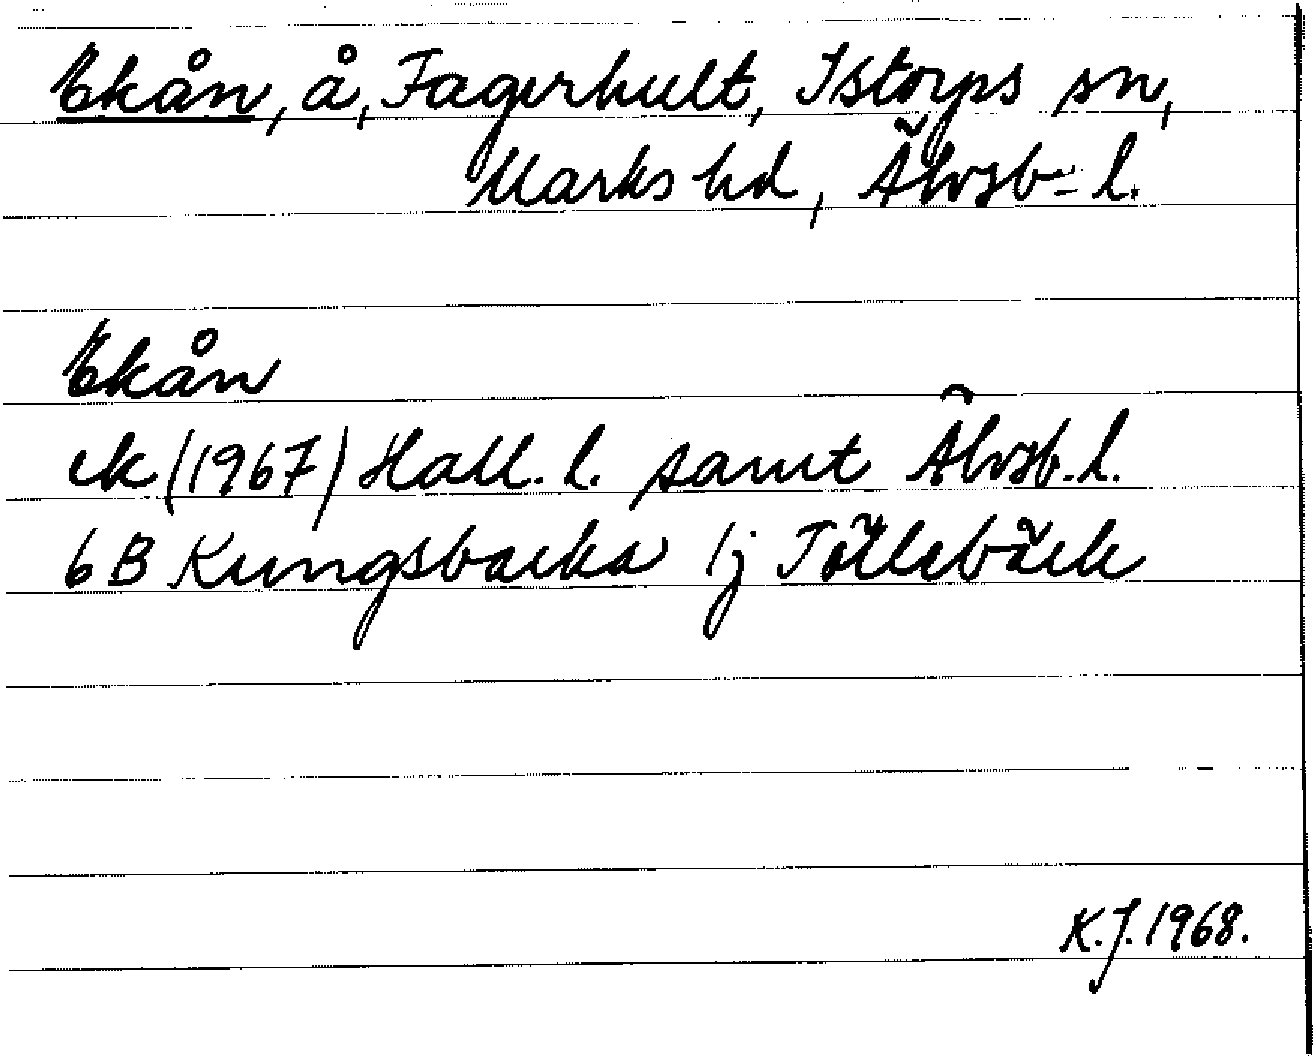 Ekån, å, Fagerhult, Istorps sn,
Marks hd, Älvsb= l.
Ekån
ek (1967) Hall. l. samt Älvsb. l.
6 B Kungsbacka 1j Töllebäck
K.J. 1968.